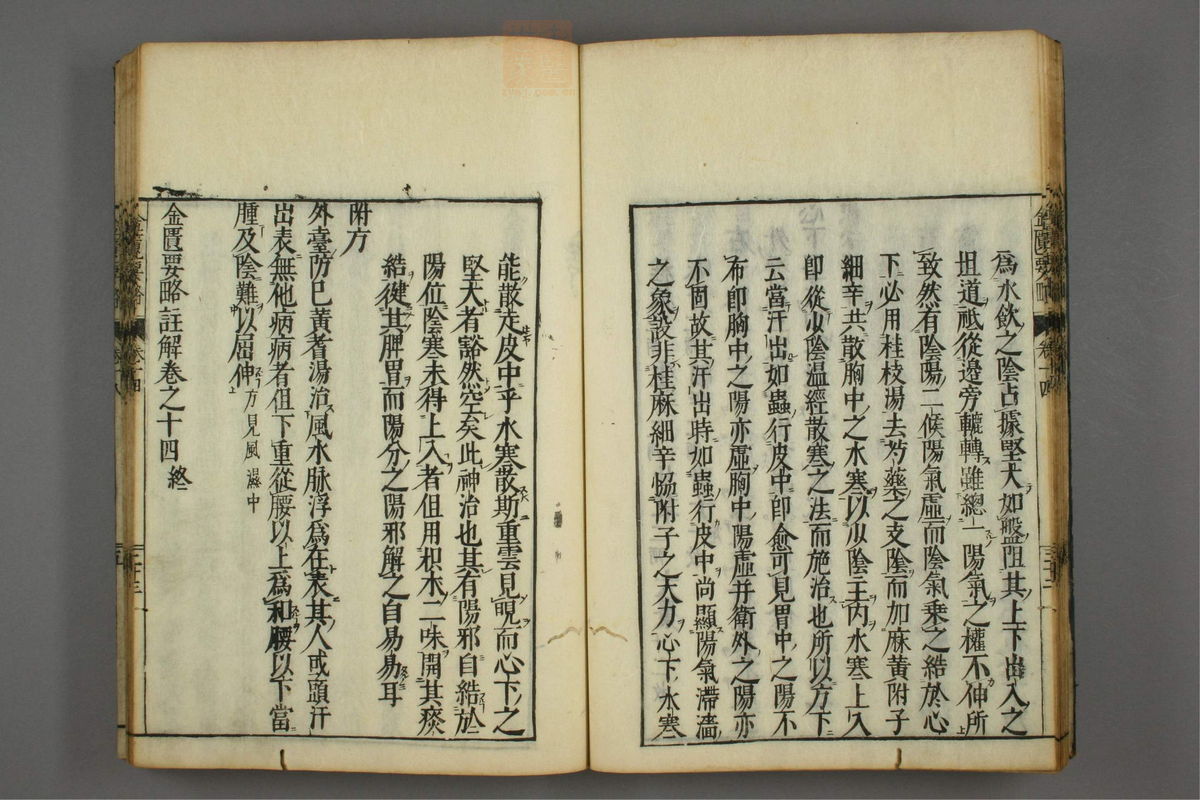 爲水飲之陰占據堅大如盤阻其上下出入之
抯道祗從邊旁轆轉雖總一陽氣之權不伸所
致然有陰陽二候陽氣虛而陰氣乗之結於心
下必用桂枝湯去芍藥之支陰而加麻黄附子
細辛共散胸中之水寒以少陰主内水寒上入
即從少陰温經散寒之法而施治也所以方下
云當汗出如蟲行皮中即愈可見胃中之陽不
布即胸中之陽亦虛胸中陽虛并衛外之陽亦
不固故其汗出時如蟲行皮中尚顯陽氣滯濇
之象設非桂麻細辛恊附子之大力心下水寒
能散走皮中乎水寒散斯重雲見晛而心下之
堅大者豁然空矣此神治也其有陽邪自結於
陽位陰寒未得上入者但用枳朮二味開其痰
結健其脾胃而陽分之陽邪解之自易易耳
附方
外臺防已黄耆湯治風水脉浮爲在表其人或頭汗
出表無他病病者但下重從腰以上爲和腰以下當
腫及陰難以屈伸方見風濕中
金匱要略註解卷之十四終
金匱要略
卷十四